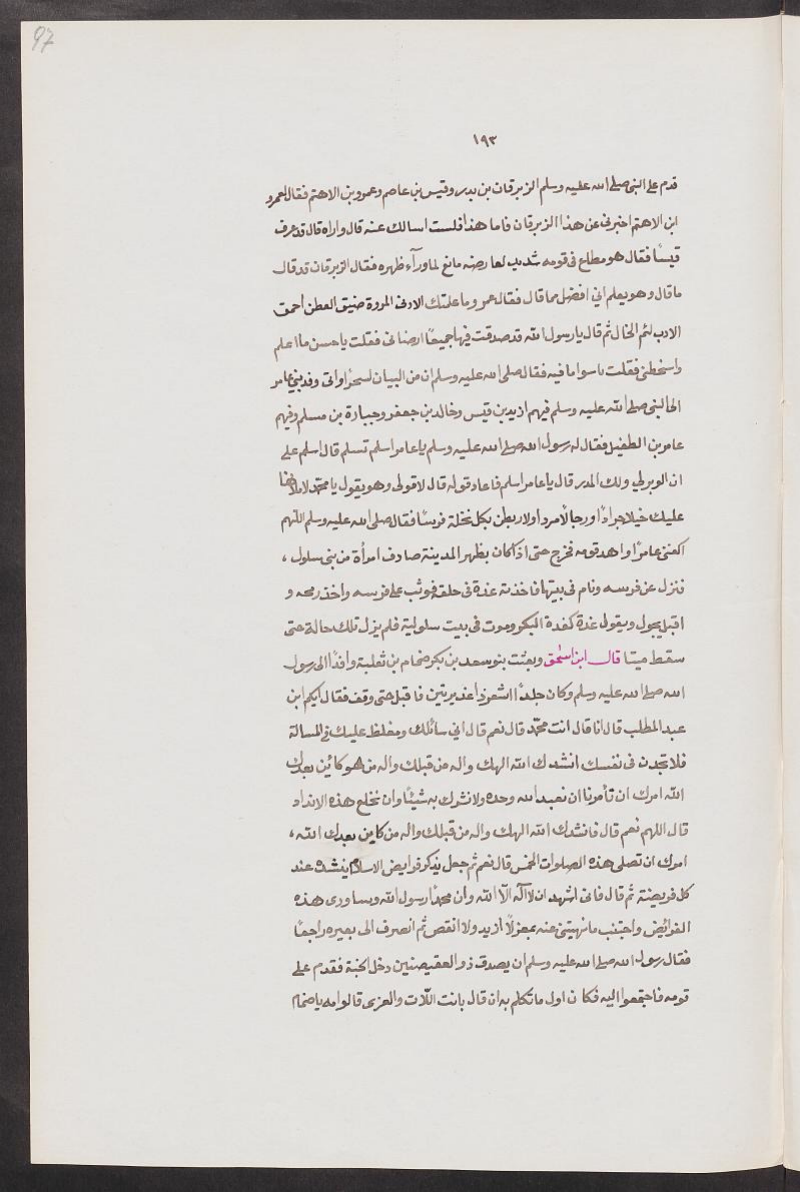 97
١٩٣
قدم على النبى صلى الله عليه وسلم الزبرقان بن بدر وقيس بن عاصم وعمرو بن الاهتم فقال لعمرو
ابن الاهتم اخبرنى عن هذا الزبرقان فاما هذا فلست اسالك عنه قال واراه قال قد عرف
قيسًا فقال هو مطاع فى قومه شديد لعارضه مانع لما ورآء ظهره فقال الزبرقان قد قال
ما قال وهو يعلم انى افضل مما قال فقال عمر وما علمتك الا دنى المروة ضيق العطن أحمق
الادب لئم الخال ثم قال يا رسول الله قد صدقت فيها جميعًا ارضانى فقلت ياحسن ما اعلم
واسخطنى فقلت باسوا ما فيه فقال صلى الله عليه وسلم ان من البيان لسحرًا واتى وفد بنى عامر
الى النبى صلى الله عليه وسلم فيهم ازيد بن قيس وخالد بن جعفر وجبارة بن مسلم وفيهم
عامر بن الطفيل فقال له رسول الله صلى الله عليه وسلم يا عامر اسلم تسلم قال اسلم على
ان الوبر لي ولك المدر قال يا عامر اسلم فاعاد قوله قال لا فولى وهو يقول يا محمد لاملأنها
عليك خيلا جرادًا ورجالًا مردا ولاربطن بكل نخلة فرسًا فقال صلى الله عليه وسلم اللهم
اكفنى عامرًا واهد قومه فخرج حتى اذا كان بظهر المدينة صادف امرأة من بنى سلول ،
فنزل عن فرسه ونام فى بيتها فاخذته غدة فى حلقه فوثب على فرسه واخذ رمحه و
اقبل يجول ويقول غدة كغدة البكر وموت فى بيت سلولية فلم يزل تلك حالة حتى
سقط ميتا قال ابن اسحٰق وبعثت بنو سعد بن بكر ضمام بن ثعلبة وافدًا الى رسول
الله صلى الله عليه وسلم وكان جلدًا اشعر ذا غديرتين فاقبل حتى وقف فقال ايكم ابن
عبد المطلب قال انا قال انت محمد قال نعم قال انى سائلك ومغلظ عليك فى المسالة
فلا تجدن فى نفسك انشدك الله الهك واله من قبلك واله من هو كائن بعدك
الله امرك ان تأمرنا ان نعبد الله وحده ولا نشرك به شيئًا وان نخلع هذه الانداد
قال اللهم نعم قال فانشدك الله الهك واله من قبلك واله من كاين بعدك الله ،
امرك ان تصلى هذه الصلوات الخمس قال نعم ثم جعل يذكر فرايض الاسلام ينشده عند
كل فريضة ثم قال فانى اشهد ان لا آله الّا الله وان محمدًا رسول الله وساودى هذه
الفرائض واجتنب ما نهيتنى عنه بمعزلًا ازيد ولا انقص ثم انصرف الى بعيره راجعًا
فقال رسول الله صلى الله عليه وسلم ان يصدق ذو العقيصتين دخل الجنة فقدم على
قومه فاجتمعوا اليه فكان اول ما تكلم به ان قال بانت اللّات والعزى قالوا مه يا ضمام